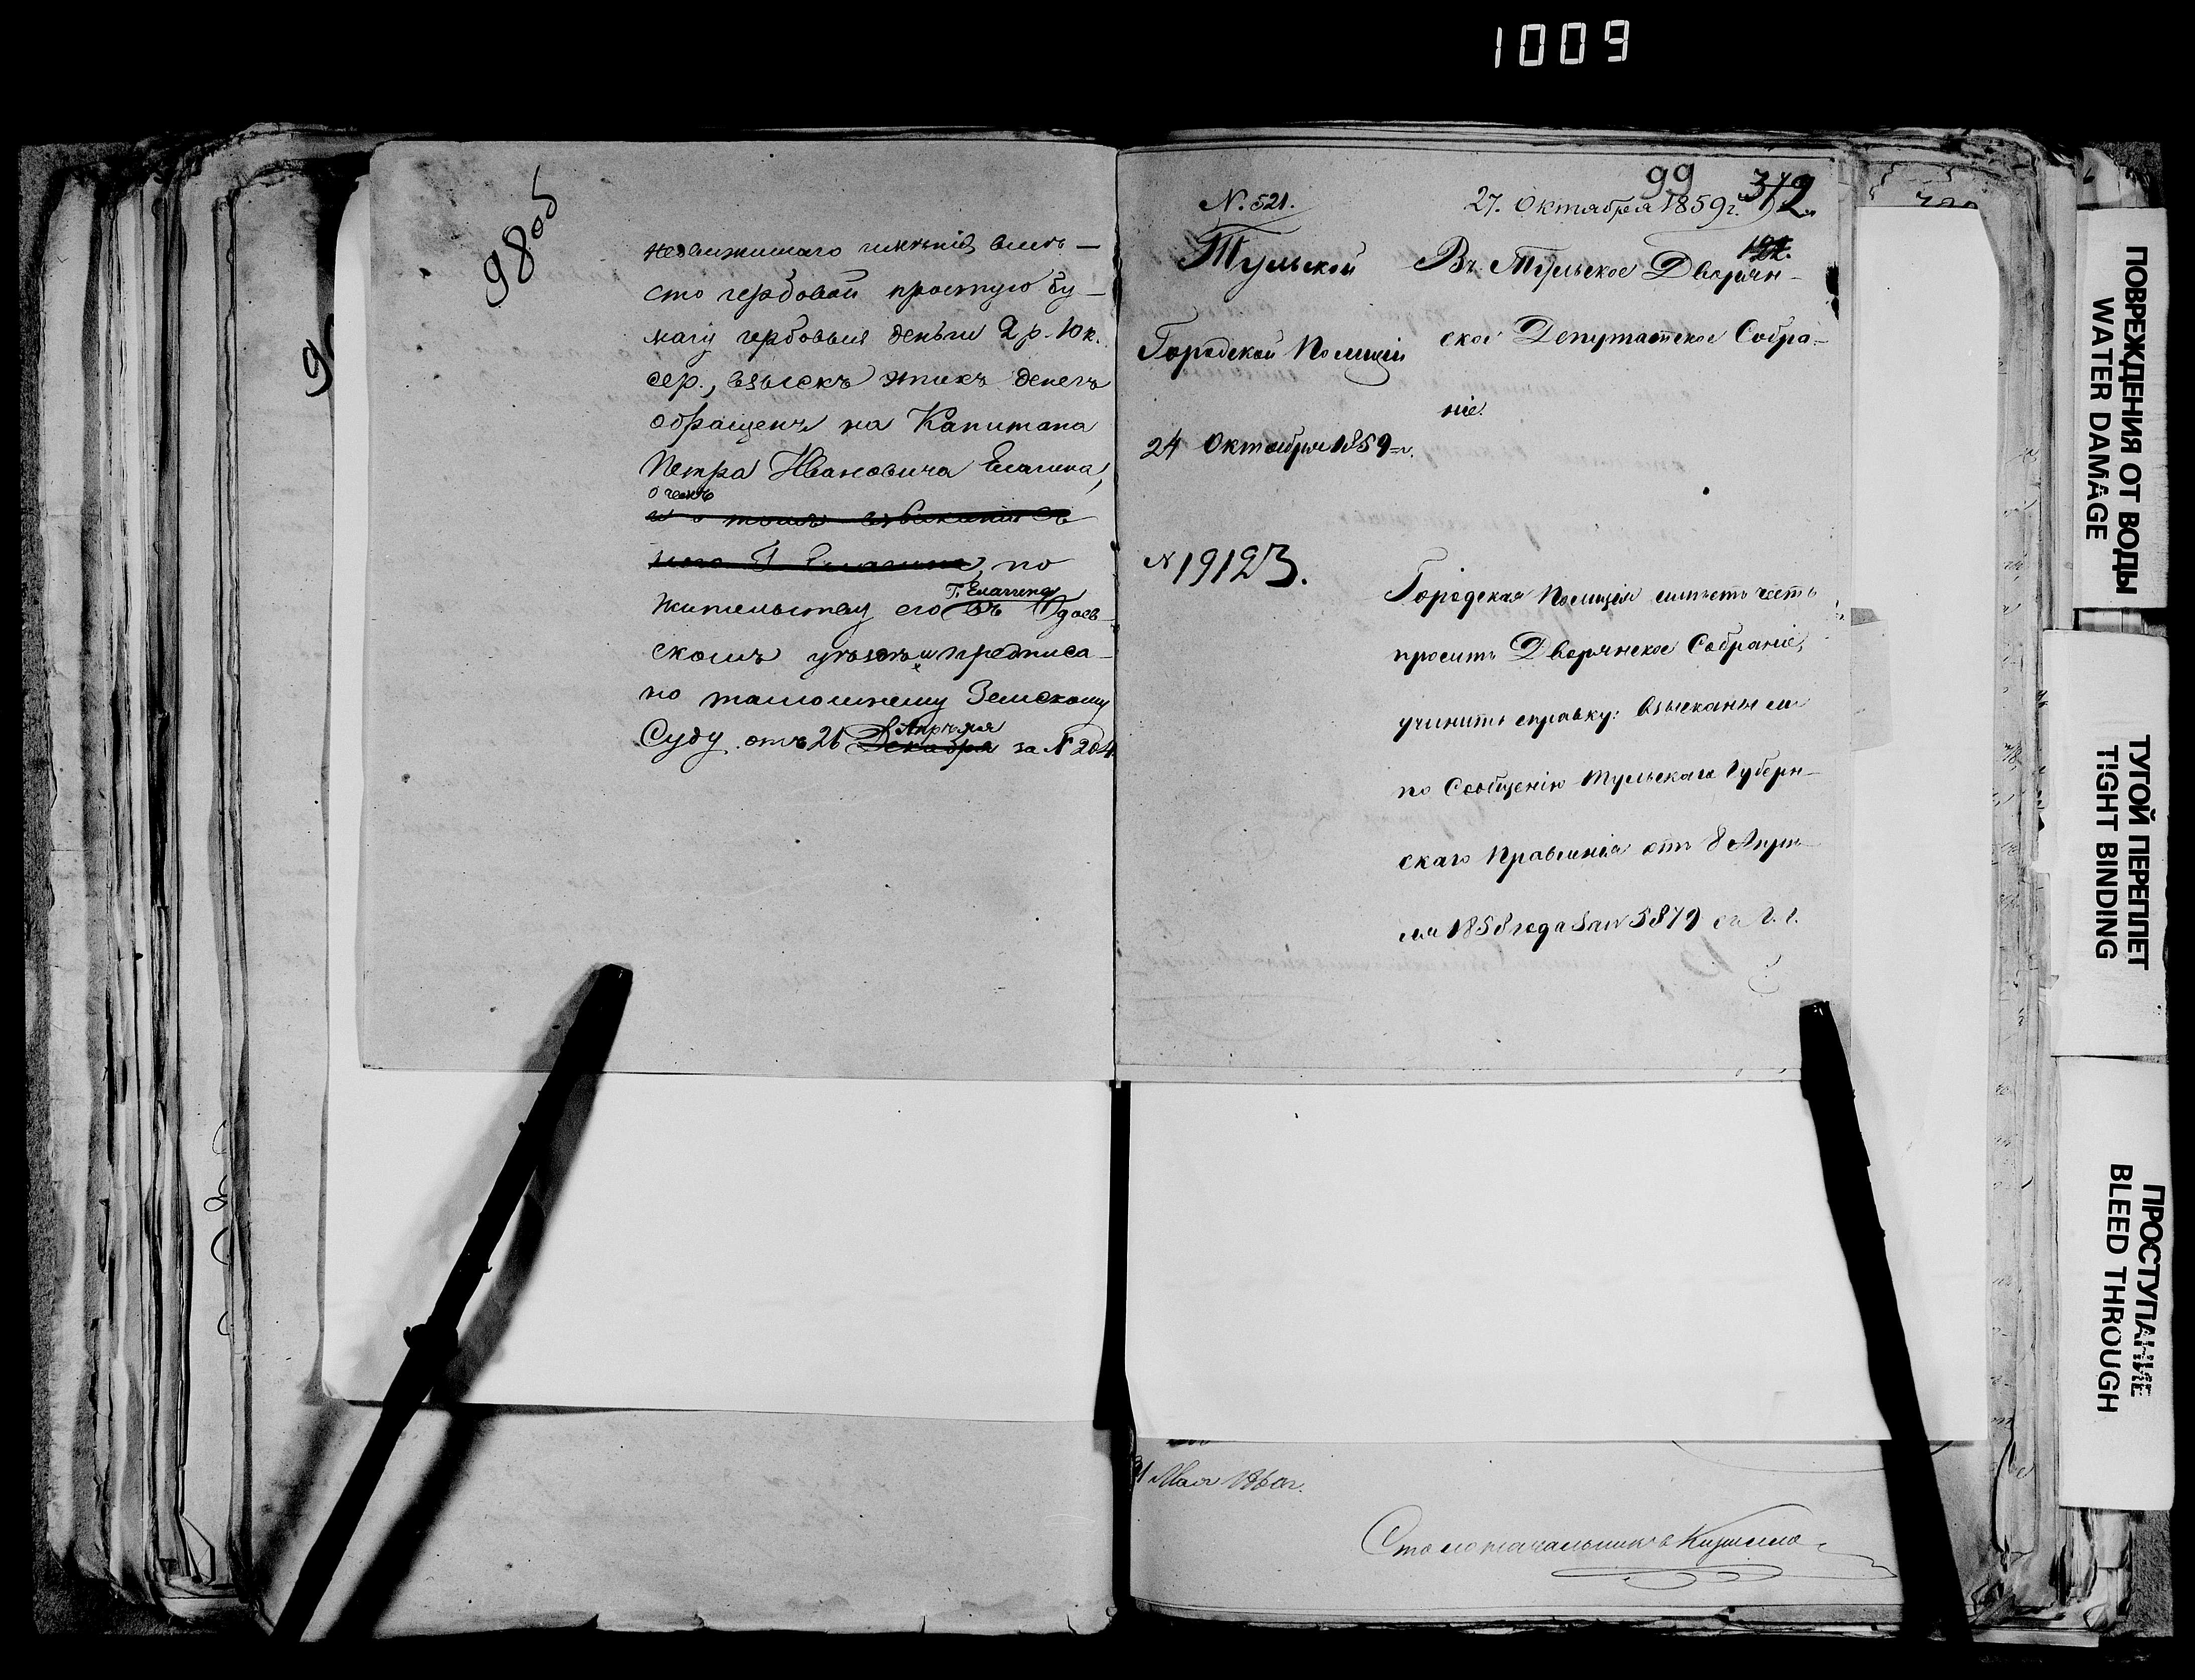 1009
98об
недвижимаго имѣнія, вмѣ-
сто гербовой простую бу-
магу гербовыя деньги 2 р. 10 к.
сер., взыскъ этихъ денегъ
обращенъ на Капитана
Петра Ивановича Елагина,
о чемъ
и о томъ взысканіи съ
него Г. Елагина, по
Г. Елагина
жительству его въ Одоев-
скомъ уѣздѣ и предписа-
но тамошнему Земскому
Апрѣля
Суду отъ 26 Декабря за № 204
99
312
N. 521.
27. Октября 1859 г.
Тульской
Городской Полиціи
24 Октября 1859 г.
№ 19123.
Въ Тульское Дворян-
ское Депутатское Собра-
ніе.
Городская Полиція имѣетъ честь
просить Дворянское Собраніе,
учинить справку: взысканы ли
по Сообщенію Тульскаго Губерн-
скаго Правленія отъ 8 Апрѣ-
ля 1858 года за № 5879 съ Г. Г.
Мая 1860 г.
Столоначальникъ
ПОВРЕЖДЕНИЯ ОТ ВОДЫ
WATER DAMAGE
ТУГОЙ ПЕРЕПЛЕТ
TIGHT BINDING
ПРОСТУПАНИЕ
BLEED THROUGH